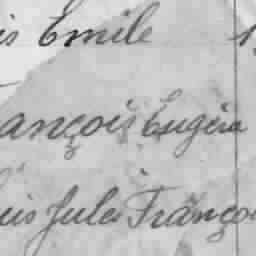 is Emile 1
ançois Eugèn
uis Jules Franço